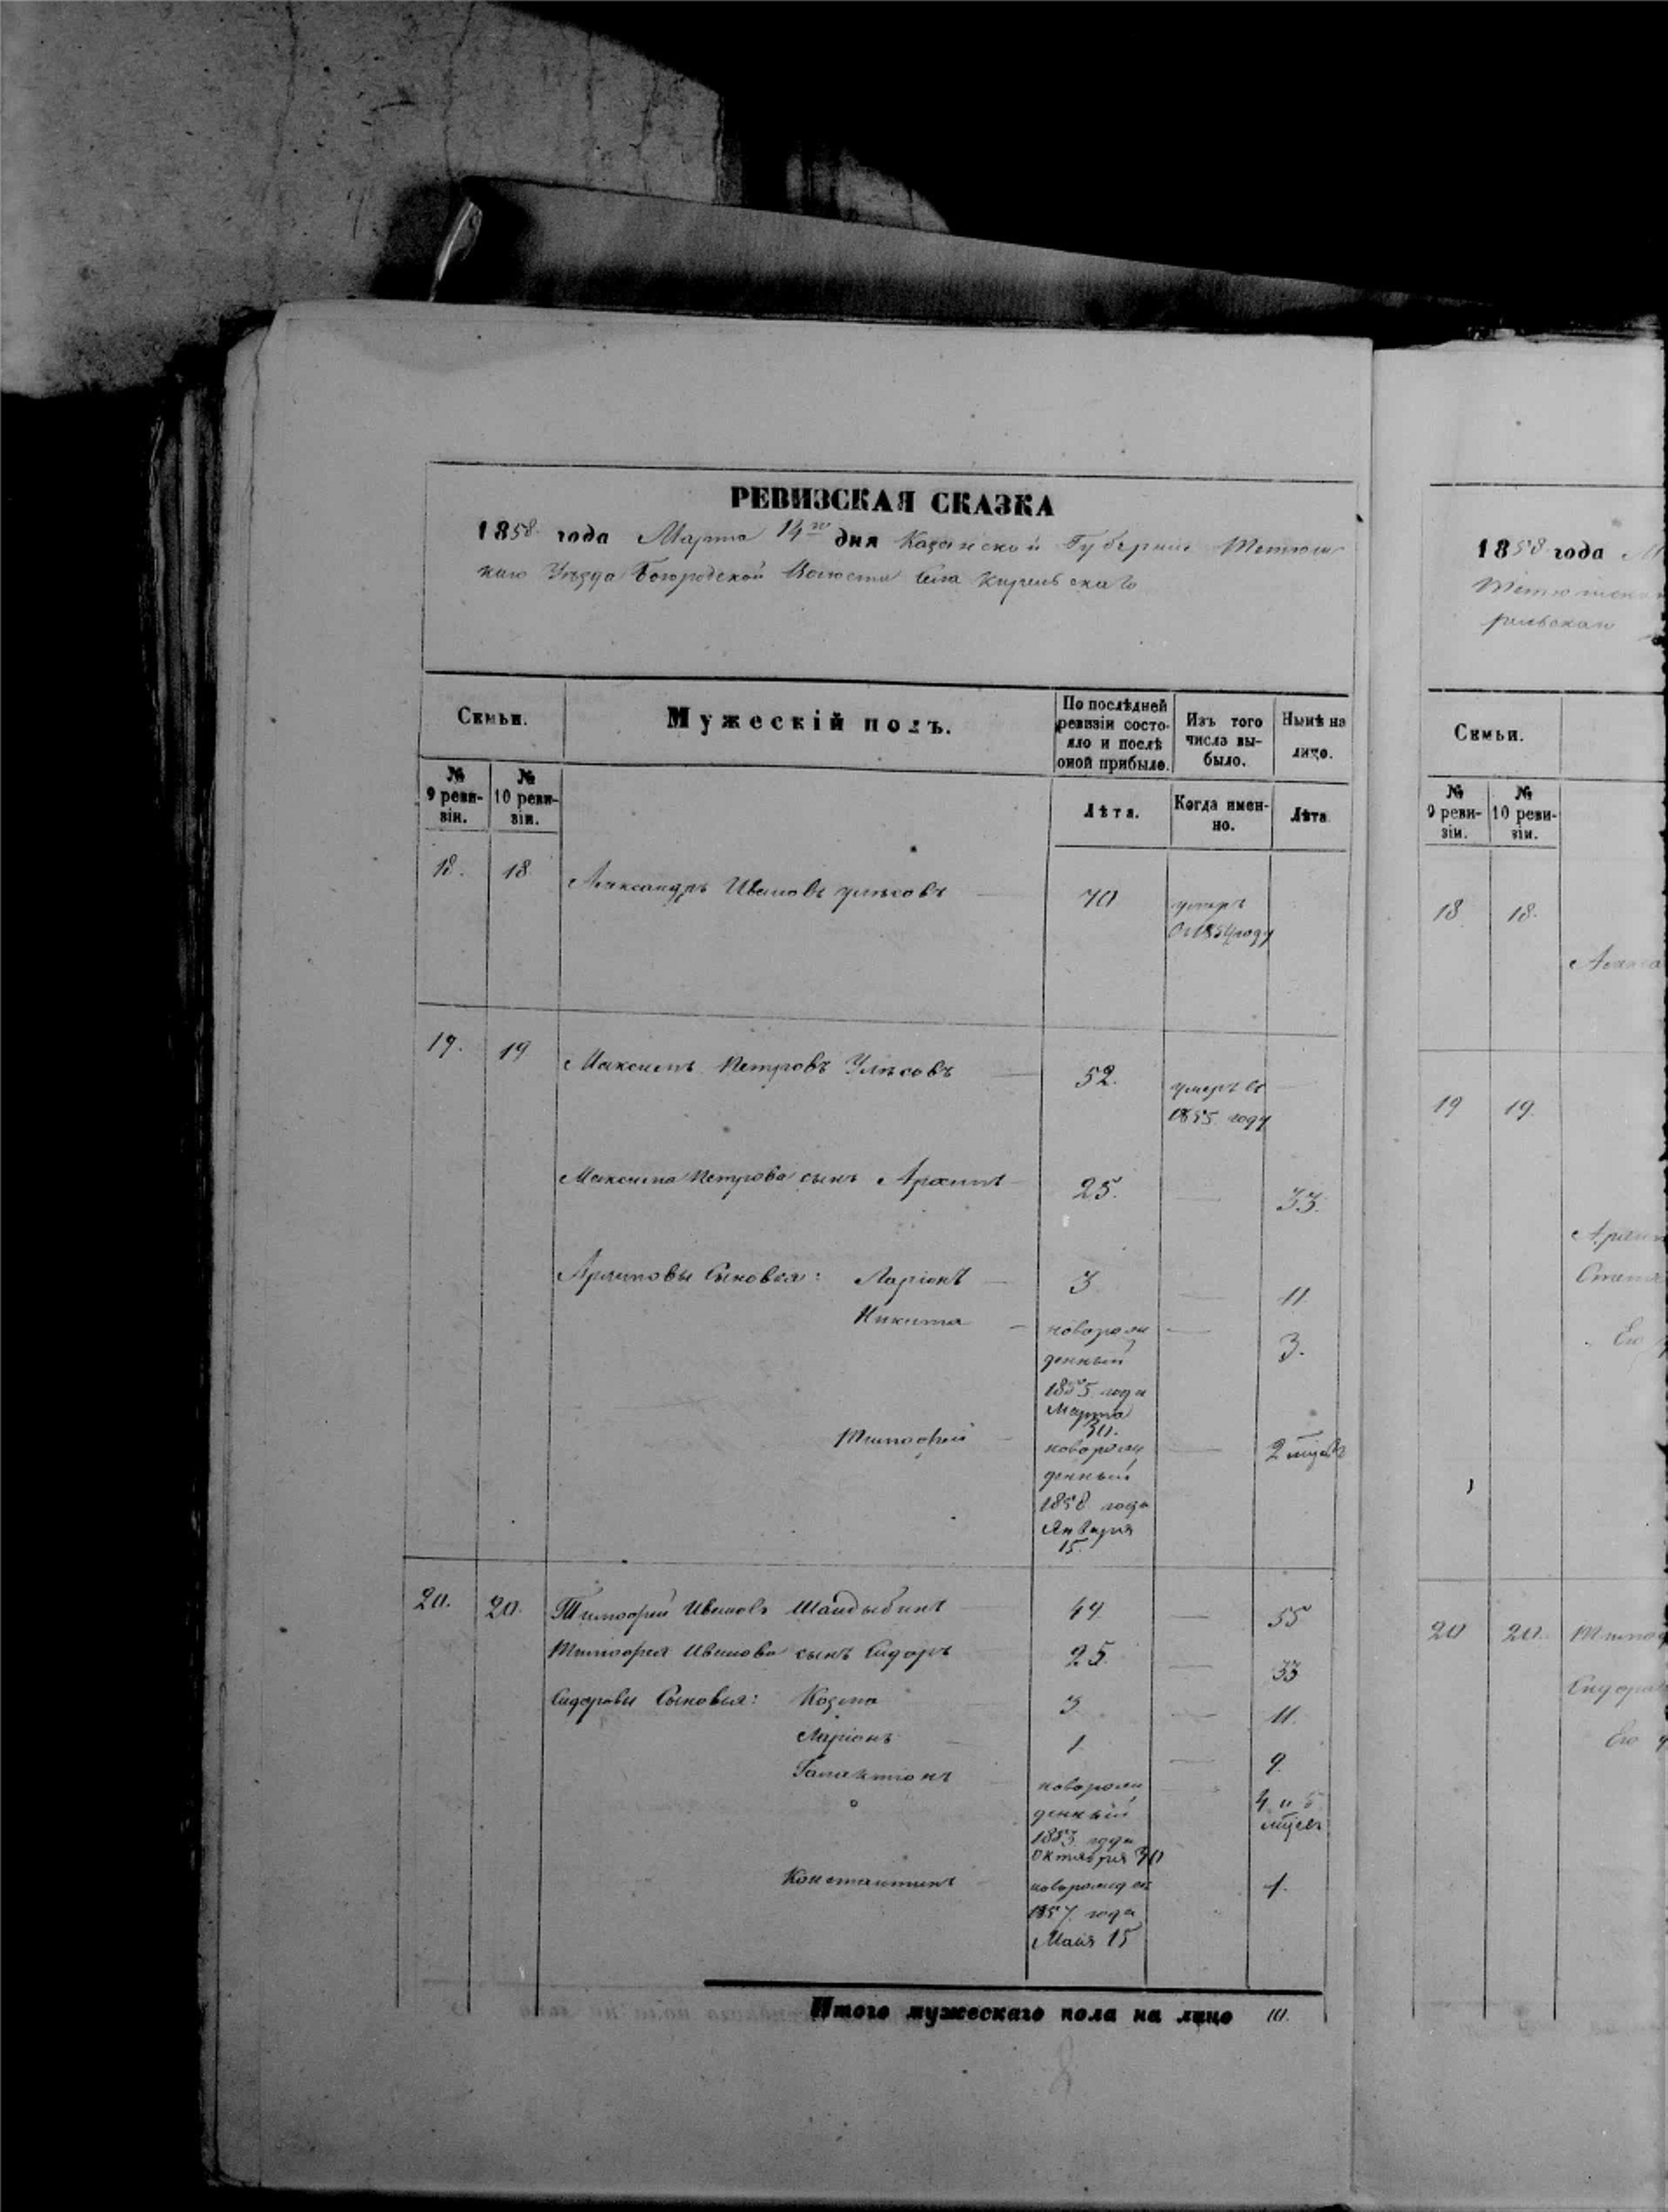 РЕВИЗСКАЯ СКАЗКА
1858 года Марта 14го дня Казанской Губернiи Тетюш
каго Уѣзда Богородской Волости Села
Семьи.
Мужескiй полъ.
По послѣдней ревизiи состо-
яло и послѣ
оной прибыло.
Изъ того
числа вы-
было.
Нынѣ на
лицо.
№
9 реви-
зiи.
№
10 реви-
зiи.
Лѣта.
Когда имен-
но.
Лѣта
18. 18 Александръ Ивановъ Улѣсовъ 70 умеръ
въ 1854 году
19. 19 Максимъ Петровъ Улѣсовъ 52. умеръ въ
1855 году
Максима Петрова сынъ 25. 33.
Сыновья: Ларiонъ 3 11.
Никита новорож
денный 3.
1855 года
Марта
30.
Тимофей новорож 2 мцъ
денный
1858 года
Января
15.
20. 20. Тимофей Ивановъ Шандыбинъ 47 55
Тимофея Иванова сынъ Сидоръ 25. 33
Сидоровы Сыновья: Козма 3 11.
Ларiонъ 1. 9.
Галактiонъ новорож 4 и 5
денный мцевъ
1853 года
октября 30
Константинъ новорожден 1.
1857 года
Маiя 15
Итого мужескаго пола на лицо 10.
1858 года
Семьи.
№
9 реви-
зiи.
№
10 реви-
зiи.
18 18.
19 19.
20 20.